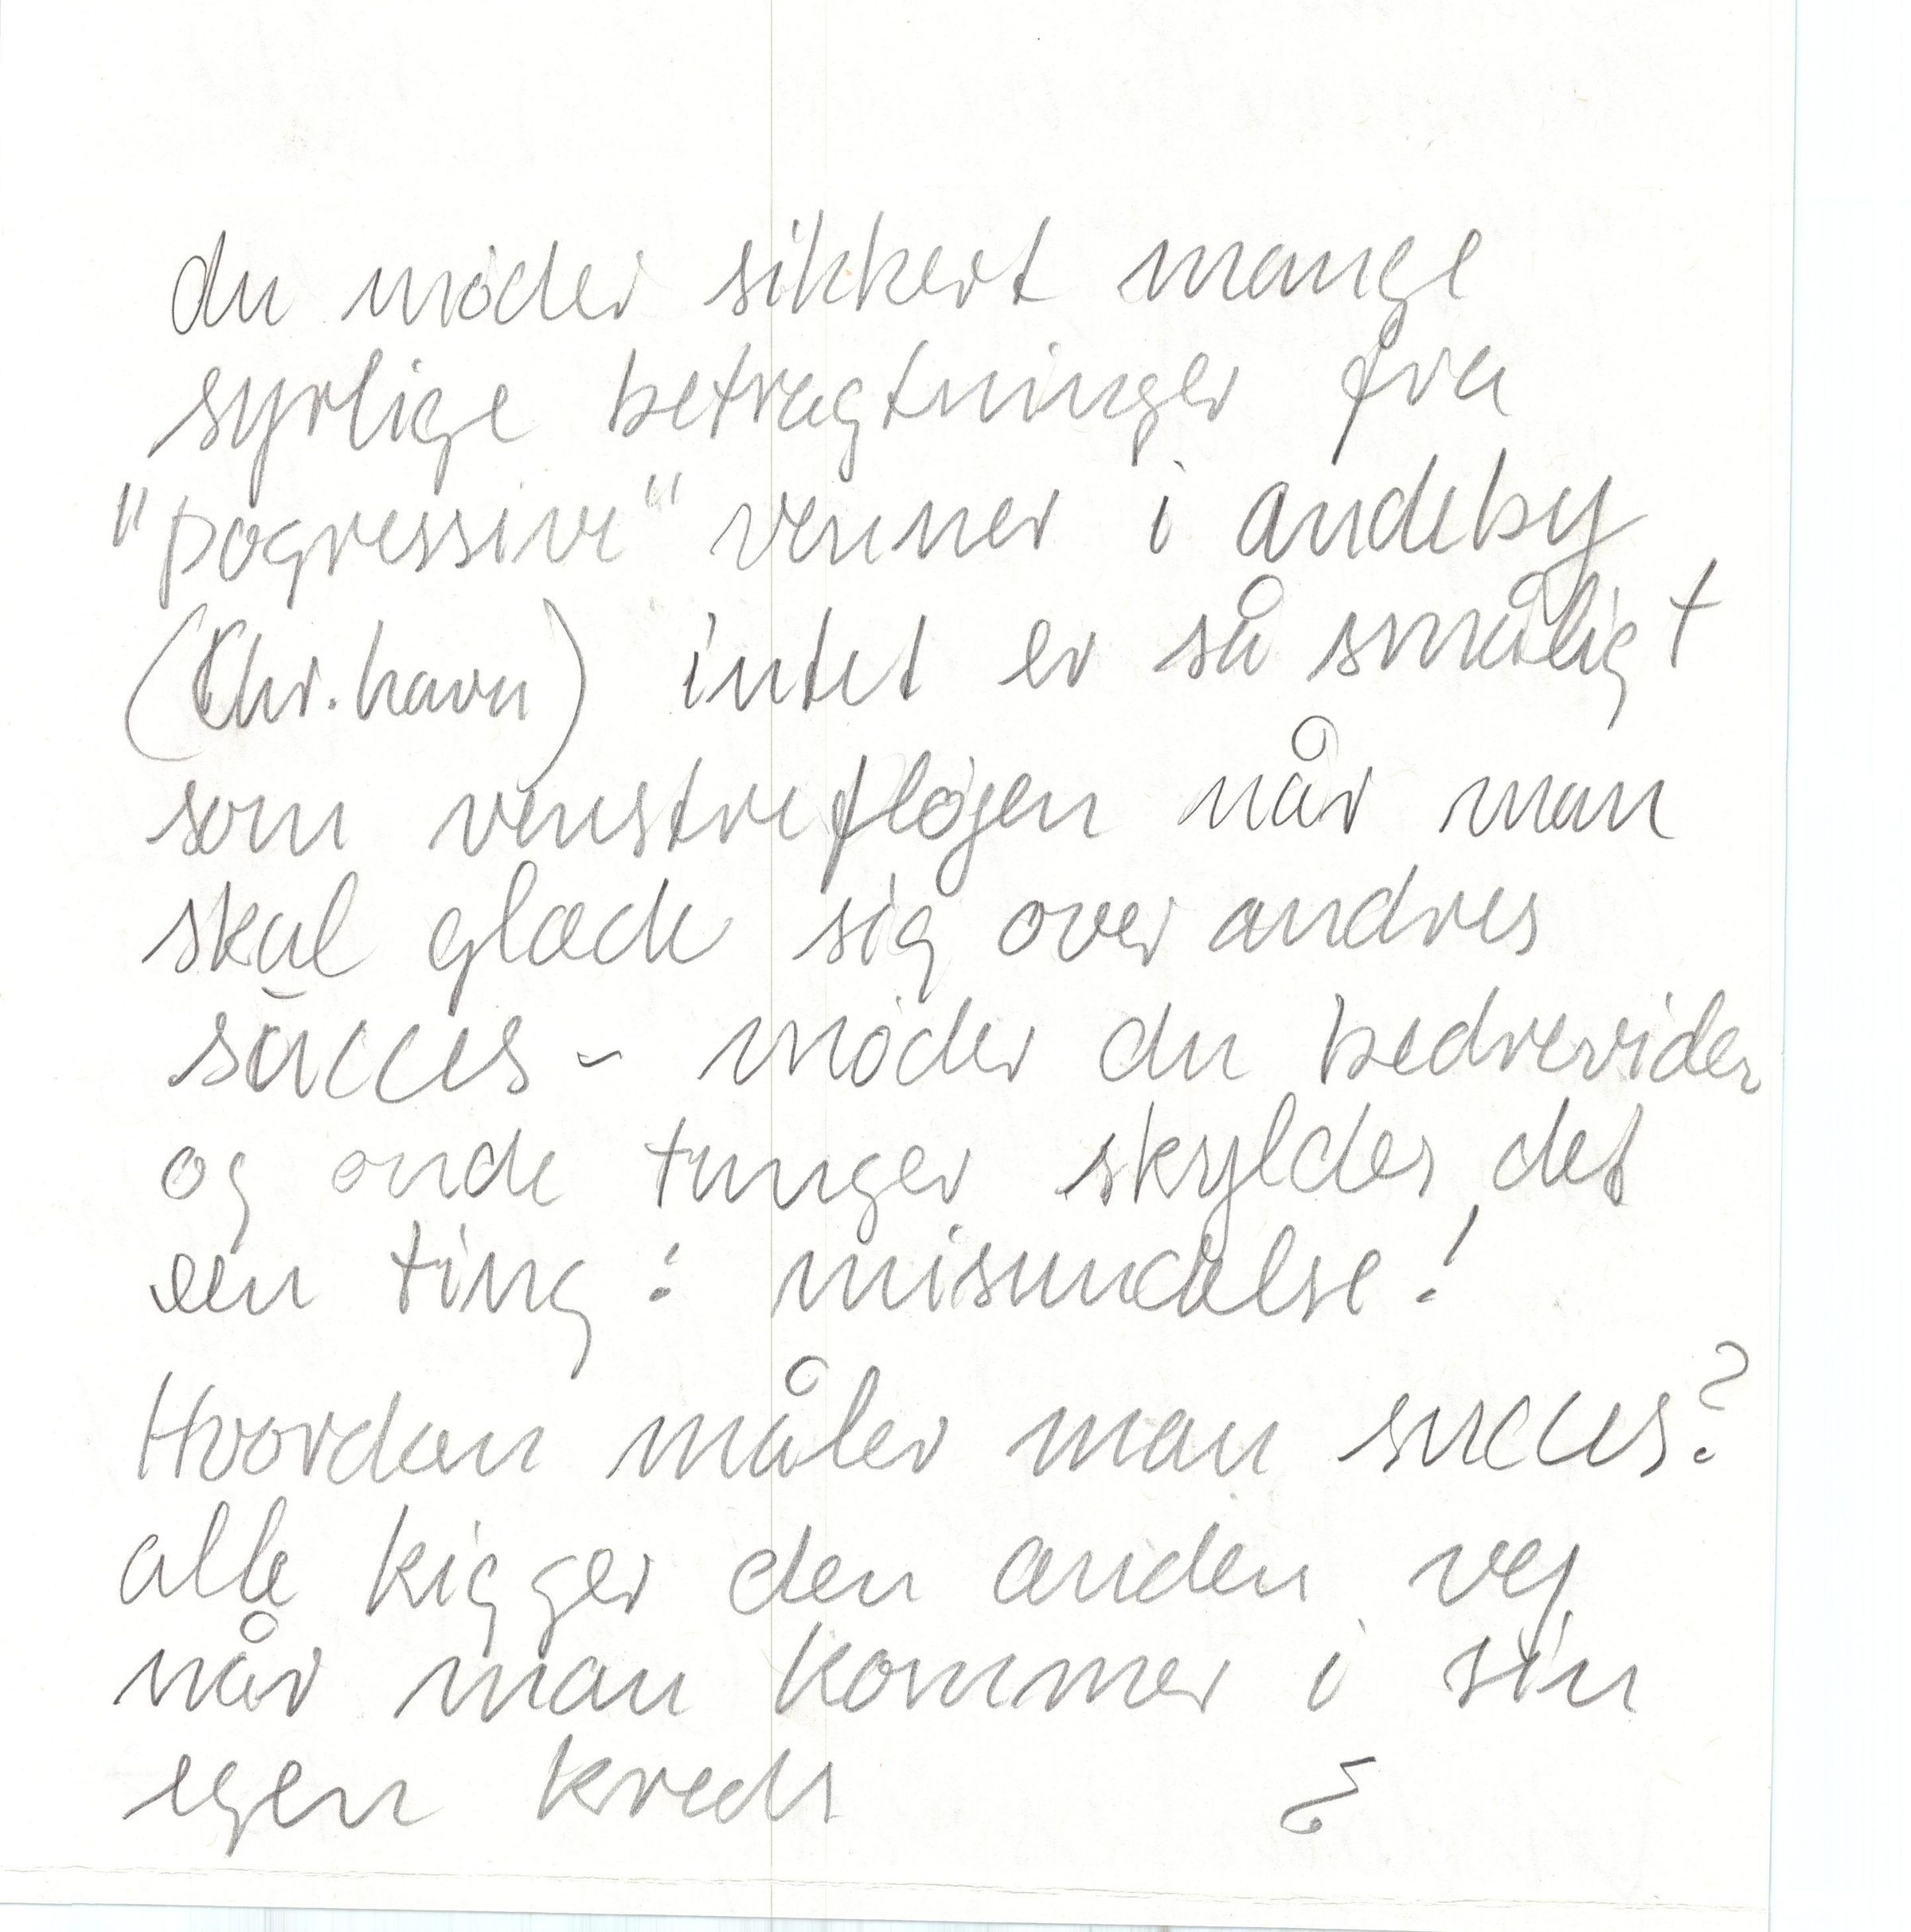 du møder sikkert mange
syrlige betragtninger fra
"pogressive" venner i andeby
(Chr.havn) intet er så småligt
som venstrefløjen når man
skal glæde sig over andres
succes - møder du bedrevider
og onde tunger skyldes det
een ting: misundelse!
Hvordan måler man succes?
alle kigger den anden vej
når man kommer i sin
egen kreds